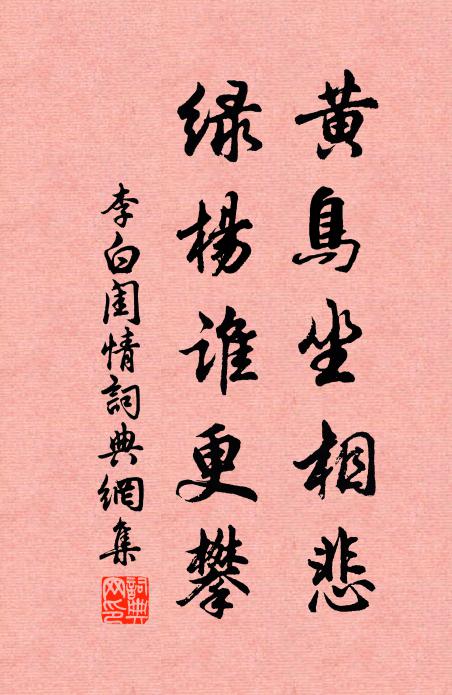 黄鳥坐相悲
绿楊誰更攀
李白閨情詞典網集
詞典網印